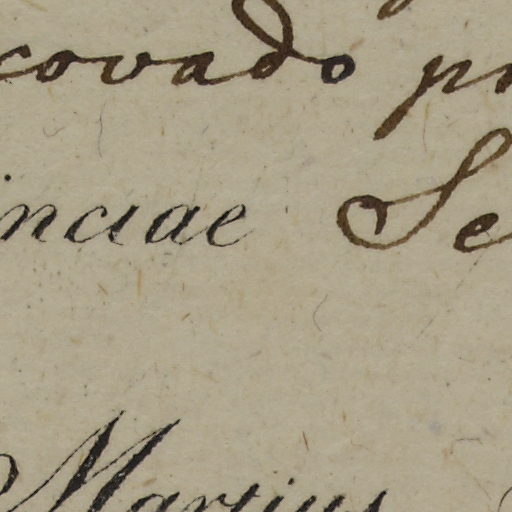 covado pr
inciae Se
Martius